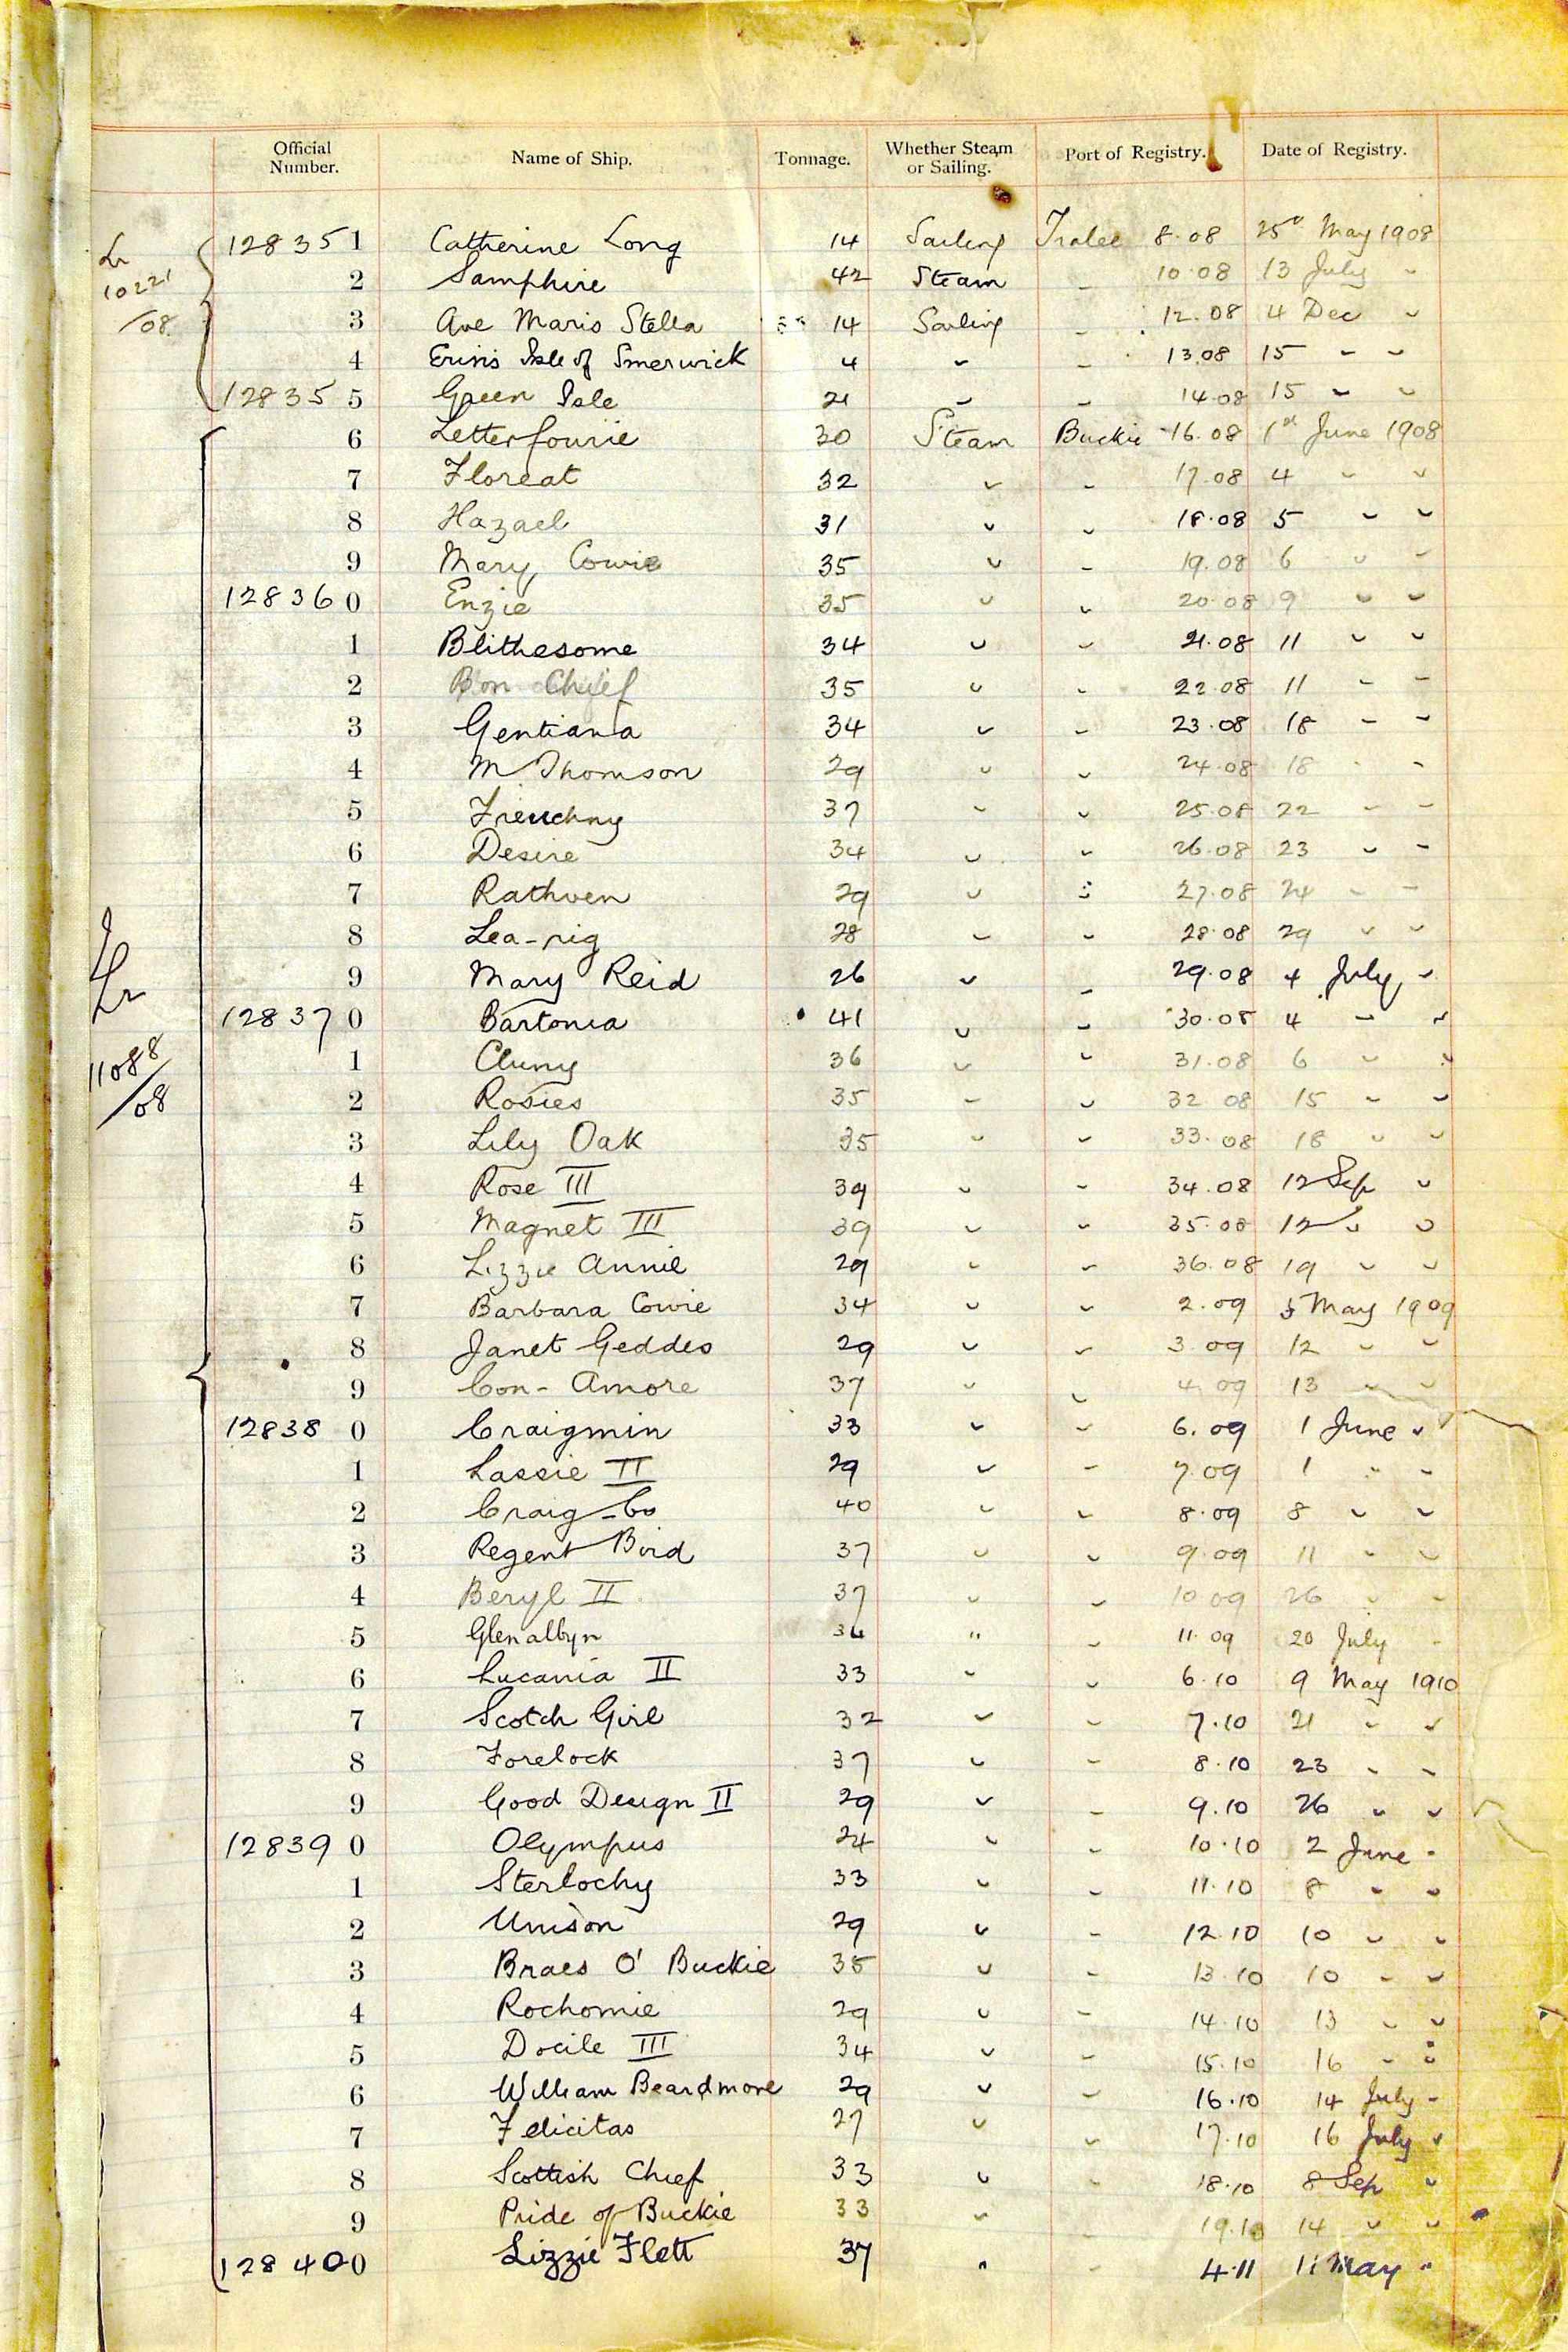 Official Number. Name of Ship. Tonnage. Whether Steam or Sailing. Port of Registry. Date of Registry.
Lr 10221/08.
128351 Catherine Long 14 Sailing Tralee 8.08 25 May 1908
2 Samphire 42 Steam " 10.08 13 July "
3 Ave Maris Stella 14 Sailing " 12.08 4 Dec "
4 Erin's Isle of Smerwick 4 " " 13.08 15 " "
128355 Green Isle 21 " " 14.08 15 " "
6 Letterfourie 30 Steam Buckie 16.08 1st June 1908
7 Floreat 32 " " 17.08 4 " "
8 Hazael 31 " " 18.08 5 " "
9 Mary Cowie 35 " " 19.08 6 " "
128360 Enzie 35 " " 20.08 9 " "
1 Blithesome 34 " " 21.08 11 " "
2 Bon Chief 35 " " 22.08 11 " "
3 Gentiana 34 " " 23.08 18 " "
4 M Thomson 29 " " 24.08 18 " "
5 Frenchny 37 " " 25.08 22 " "
6 Desire 34 " " 26.08 23 " "
7 Rathven 29 " " 27.08 24 " "
8 Lea-rig 28 " " 28.08 29 " "
9 Mary Reid 26 " " 29.08 4 July "
Lr 11088/08
128370 Bartonia 41 " " 30.08 4 " "
1 Cluny 36 " " 31.08 6 " "
2 Rosies 35 " " 32.08 15 " "
3 Lily Oak 35 " " 33.08 18 " "
4 Rose III 39 " " 34.08 12 Sep "
5 Magnet III 39 " " 35.08 12 " "
6 Lizzie Annie 29 " " 36.08 19 " "
7 Barbara Cowie 34 " " 2.09 5 May 1909
8 Janet Geddes 29 " " 3.09 12 " "
9 Con-Amore 37 " " 4.09 13 " "
128380 Craigmin 33 " " 6.09 1 June "
1 Lassie II 29 " " 7.09 1 " "
2 Craig-Bo 40 " " 8.09 8 " "
3 Regent Bird 37 " " 9.09 11 " "
4 Beryl II 37 " " 10.09 26 " "
5 Glenalbyn 34 " " 11.09 20 July "
6 Lucania II 33 " " 6.10 9 May 1910
7 Scotch Girl 32 " " 7.10 21 " "
8 Forelock 37 " " 8.10 23 " "
9 Good Design II 29 " " 9.10 26 " "
128390 Olympus 24 " " 10.10 2 June "
1 Sterlochy 33 " " 11.10 8 " "
2 Unison 29 " " 12.10 10 " "
3 Braes O' Buckie 35 " " 13.10 10 " "
4 Rochomie 29 " " 14.10 13 " "
5 Docile III 34 " " 15.10 16 " "
6 William Beardmore 29 " " 16.10 14 July "
7 Felicitas 27 " " 17.10 16 July "
8 Scottish Chief 33 " " 18.10 8 Sep "
9 Pride of Buckie 33 " " 19.10 14 " "
128400 Lizzie Flett 37 " " 4.11 11 May "